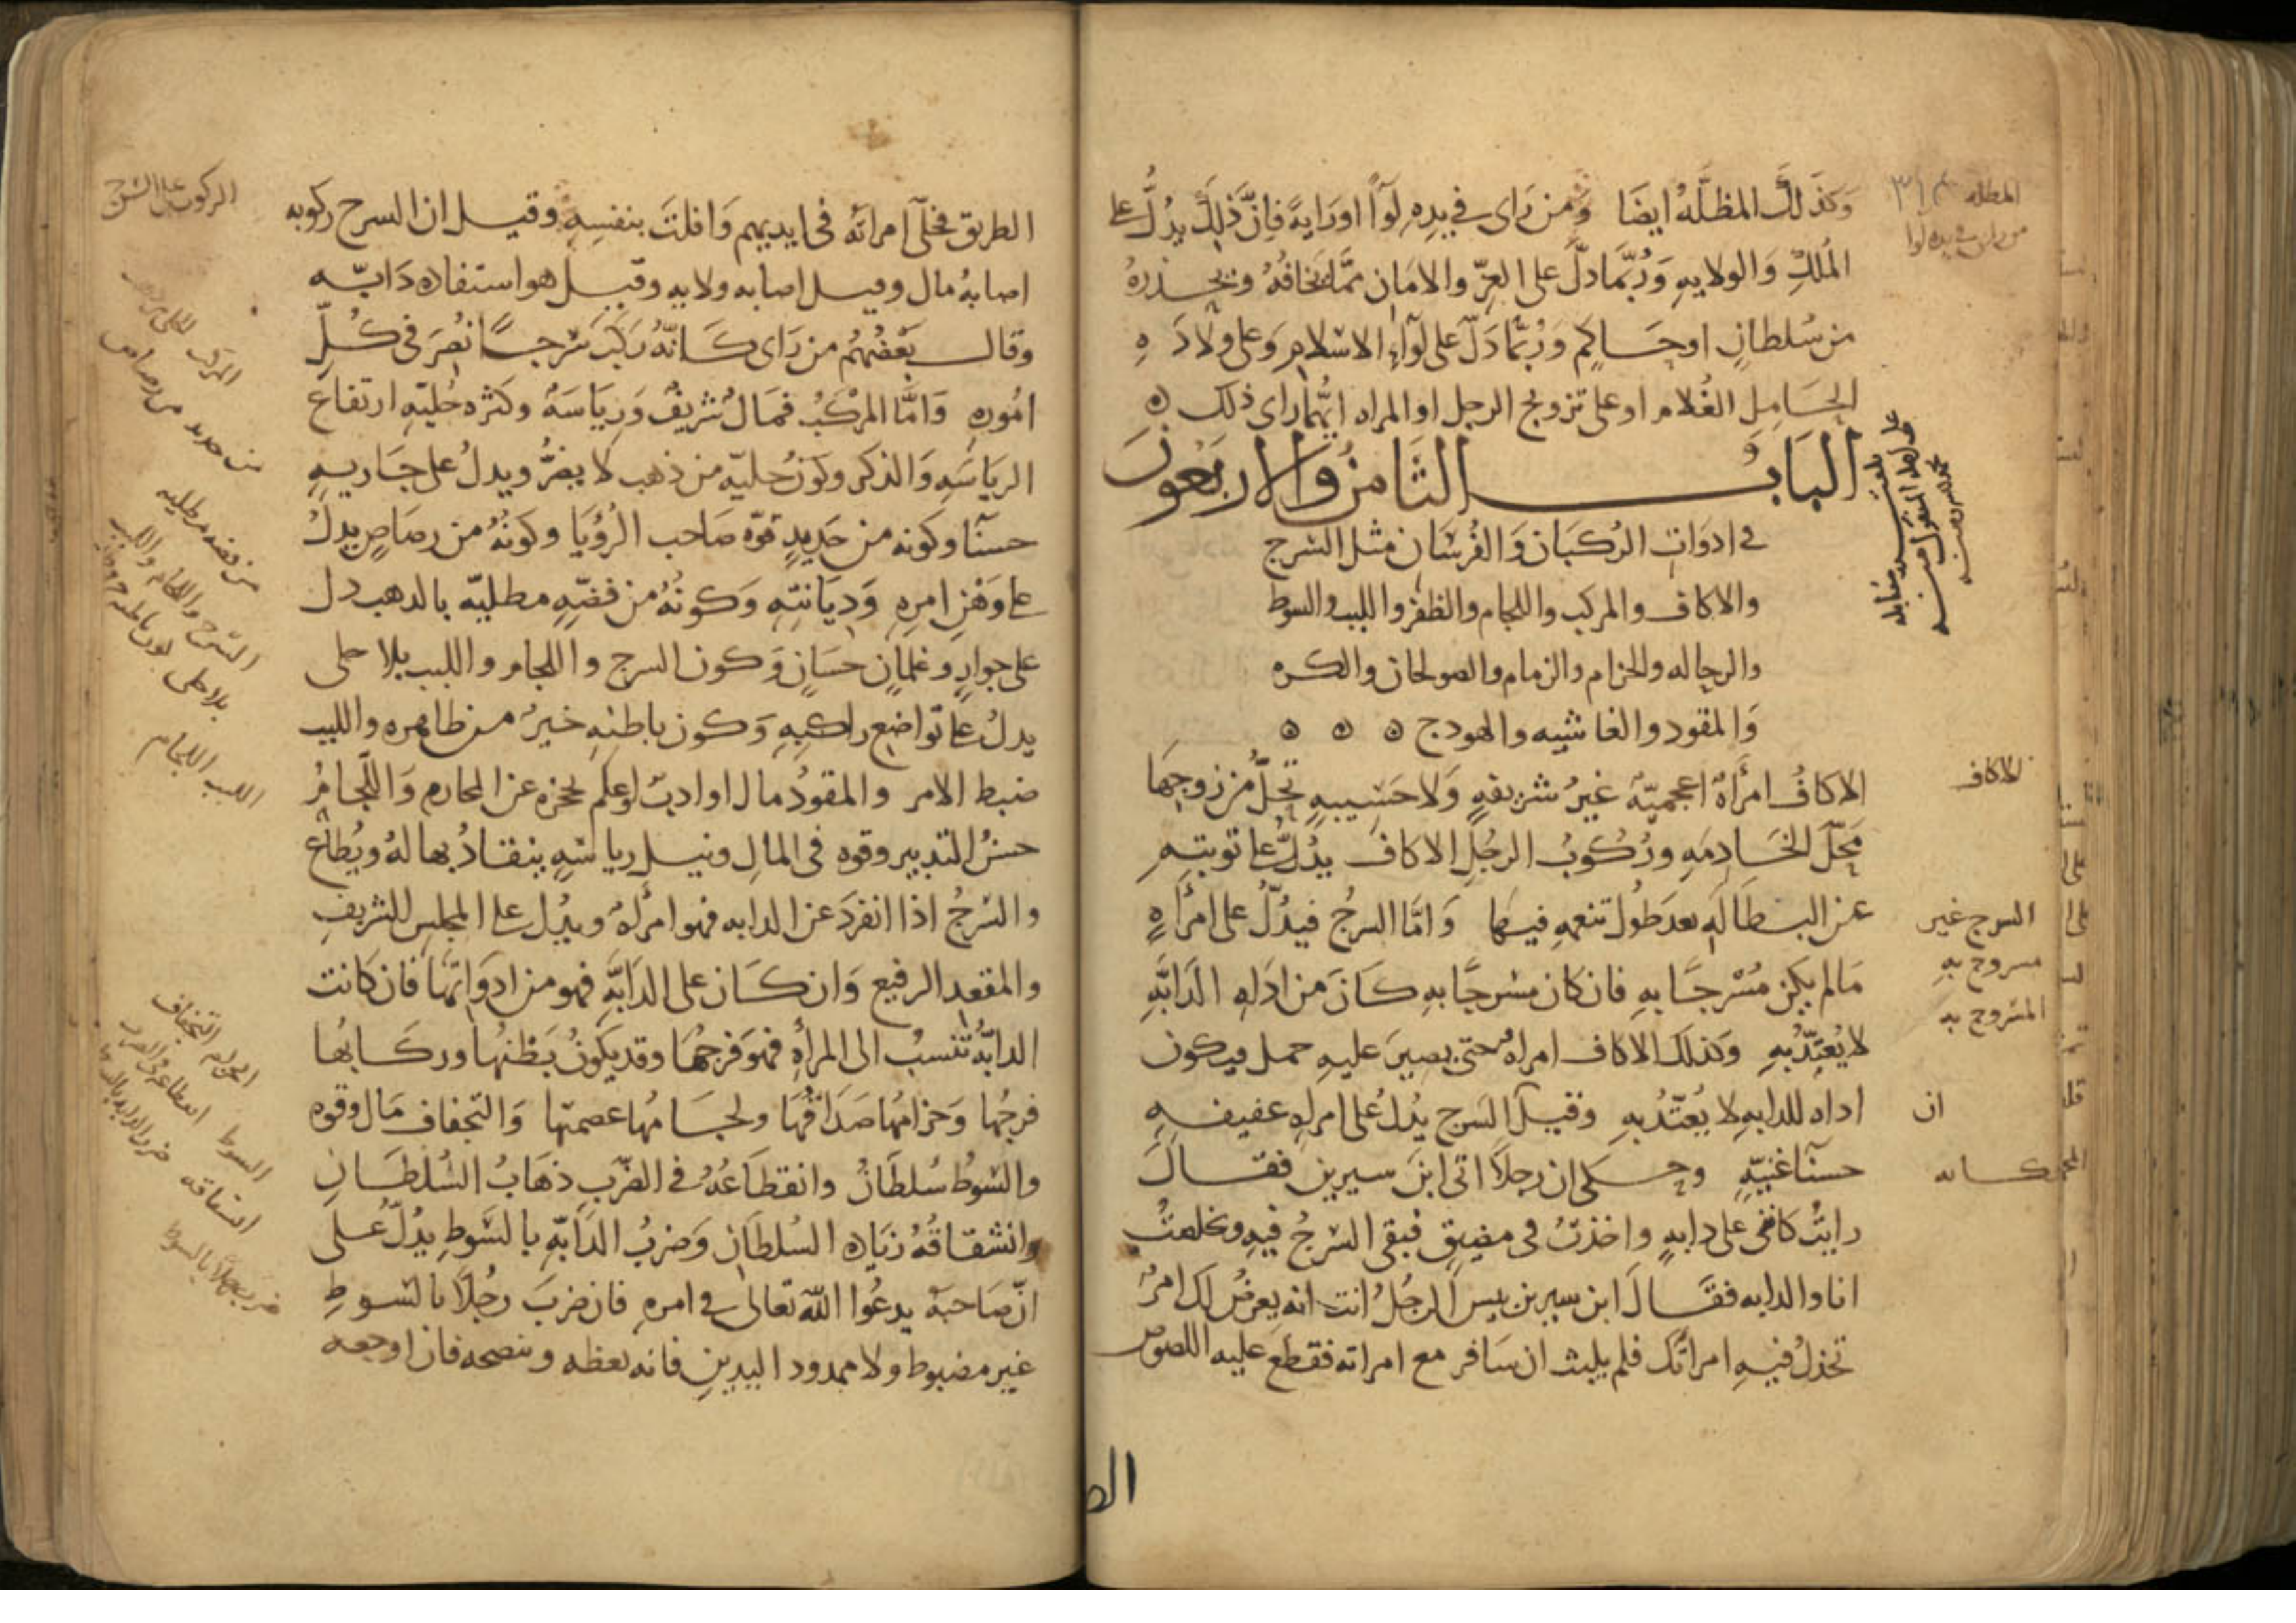 وَكَذَلِكَ المظلَّهُ ايضًا وَمن رَاى في يدِهِ لوَآً اورَايةً فاِنَّ ذلِكَ يدُلُّ على
المُلكِ وَالولايهِ وَرُبَّمَا دلَّ على العِزِّ والامَانِ ممَّا يخَافُهُ ويحذرهُ
من سُلطانٍ اوحَاكِمٍ وَرُبَّمَا دَلَّ على لوَآءِ الاسْلامِ وَعلى ولَادَهِ
الحَامِلِ الغُلام اوعلى تزويج الرجل اوالمراه ايُّهما راى ذلك
البَابُ الثَامنُ وَالاربَعونَ
في ادوَات الرُكبَان وَالفُرسَان مثل السَرج
والاكاف والمركب واللجام والظفر واللبب والسوط
والرحاله والحزام والزمام والصولجان والكره
وَالمقود والغاشيه والهودج
الاكافُ امرَأةٌ اعجميّةٌ غيرُ شريفهٍ وَلا حَسِيبهٍ تحِلُّ من زوجِهَا
محَلّ الخَادِمَهِ ورُكُوبُ الرجُلِ الاكافَ يدُلُّ على توبتهِ
عن البطَالهِ بعدَ طُول تنعمهِ فيهَا وَامَّا السرجُ فيدُلُّ على امرأهٍ
مَالم يكن مُسْرجًا بهِ فان كان مسْرجًا بهِ كَانَ من ادَاهِ الدَابَّهِ
لا يُعتَدُّ بهِ وَكذلكَ الاكاف امراهٌ حتى يصيرَ عليهِ حمل فيكون
اداه للدابهِ لا يُعتَدُّ بهِ وقيلَ السَرج يدُلُ على امراهٍ عفيفهٍ
حسنآ غنيّهٍ وحكى ان رجلاً اتى ابنَ سيرين فقالَ
رايتُ كانى على دابهٍ واخذتُ فى مضيقٍ فبقى السَرجُ فيهِ وتخلصتُ
انا والدابه فقَالَ ابن سيرين بيس الرجُلُ انت انه يعرضُ لك امرٌ
تخذلُ فيهِ امراتَك فلم يلبث ان سَافر مع امراته فقطع عليه اللصوص
المظله ٣١٤
من راى في يده لوا
الاكاف
السرج غير
مسروج بهِ
المسَروج به
ان
الطريق فخلّى امراتهُ فى ايديهم وَافلتَ بنفسِهِ وقيل ان السرج ركوبه
اصابهُ مال وقيل اصابه ولايهٍ وقيل هو استفاده دَابّه
وقال بَعْضُهُم من رَاى كَانّهُ رَكبَ سَرجًا نُصِرَ فى كُلِّ
امُورِهِ وَامَّا المرْكبُ فمَالٌ شريفٌ وَرِيَاسَهٌ وكثره حُليّهِ ارتفاع
الريَاسَهِ وَالذكر وكونُ حليّه من ذهب لا يضرُّ ويدلُ على جَاريهٍ
حسنآ وكونه من حَديدٍ قوّه صَاحب الرُؤيَا وكونُهُ من رصَاصٍ يدلُ
على وَهْنِ امرِهِ وَدِيَانتِهِ وَكونُهُ من فضّهٍ مطليّه بالدهب دل
على جوارٍ وغلمانٍ حسَانٍ وَكون السرج واللجام واللبب بلا حلى
يدلُ على تواضع راكبِهِ وَكون باطنِهِ خيرٌ من ظاهره واللبب
ضبط الامر والمقودُ مال اوادبٌ اوعلم يحجزه عن المحارم وَاللّجامُ
حسنُ التدبير وقوه فى المال ونيل رياسَهٍ ينقادُ بها لهُ ويُطاع
والسَرجُ اذا انفردَ عن الدابه فهو امرأهٌ ويدُل على المجلسِ الشريفِ
والمقعدِ الرفيع وَان كَان على الدَابَّهِ فهو من ادَوَاتِهَا فان كَانت
الدابَّهُ تُنسبُ الى المرأهِ فهوَ فرجُهَا وقد يكونُ بَطْنهَا وركَابُها
فرجُها وَحزَامُها صَدَاقُها ولجَامُها عصمتُها وَالتجفاف مَال وقوه
والسَّوطُ سُلطَانٌ وانقطَاعُهُ فى الضّربِ ذهَابُ السُلطَانِ
وانشقاقُهُ زيَاده السُلطَانِ وَضربُ الدَابّهِ بالسَّوطِ يدُلّ على
انّ صَاحبَهُ يدعُوا اللّهَ تعالى فى امرهِ فان ضربَ رجُلاً بالسَوطِ
غير مضبوطٍ ولا ممدود اليدينِ فانه يعظه وينصحه فان اوجعه
الركوب على السَرج
من فضه مطليه
اللبب اللجام
التجفاف
السوط